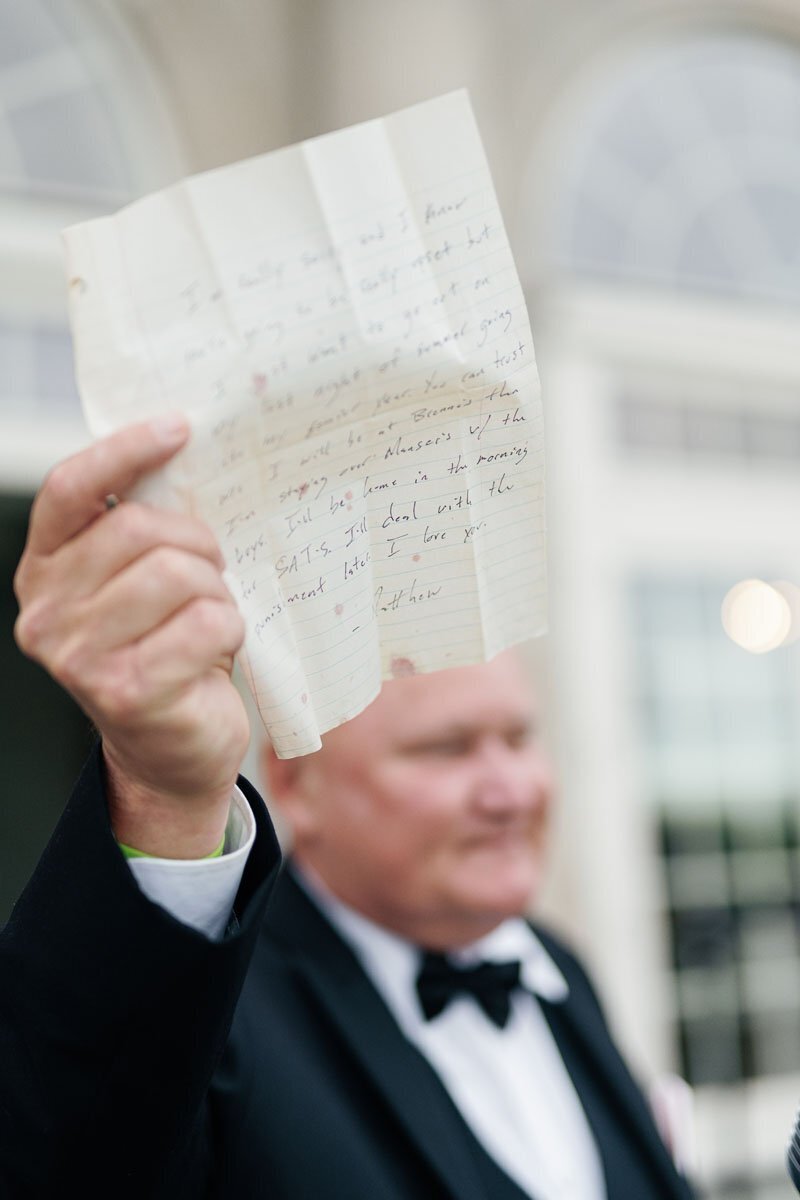 I'm really sorry and I know
you're going to be really upset but
I just want to go out on
my last night of summer going
into my senior year. You can trust
me. I will be at Brenna's then
I'm staying over Manser's w/ the
boys. I'll be home in the morning
for SATs. I'll deal with the
punishment later. I love you.
- Matthew